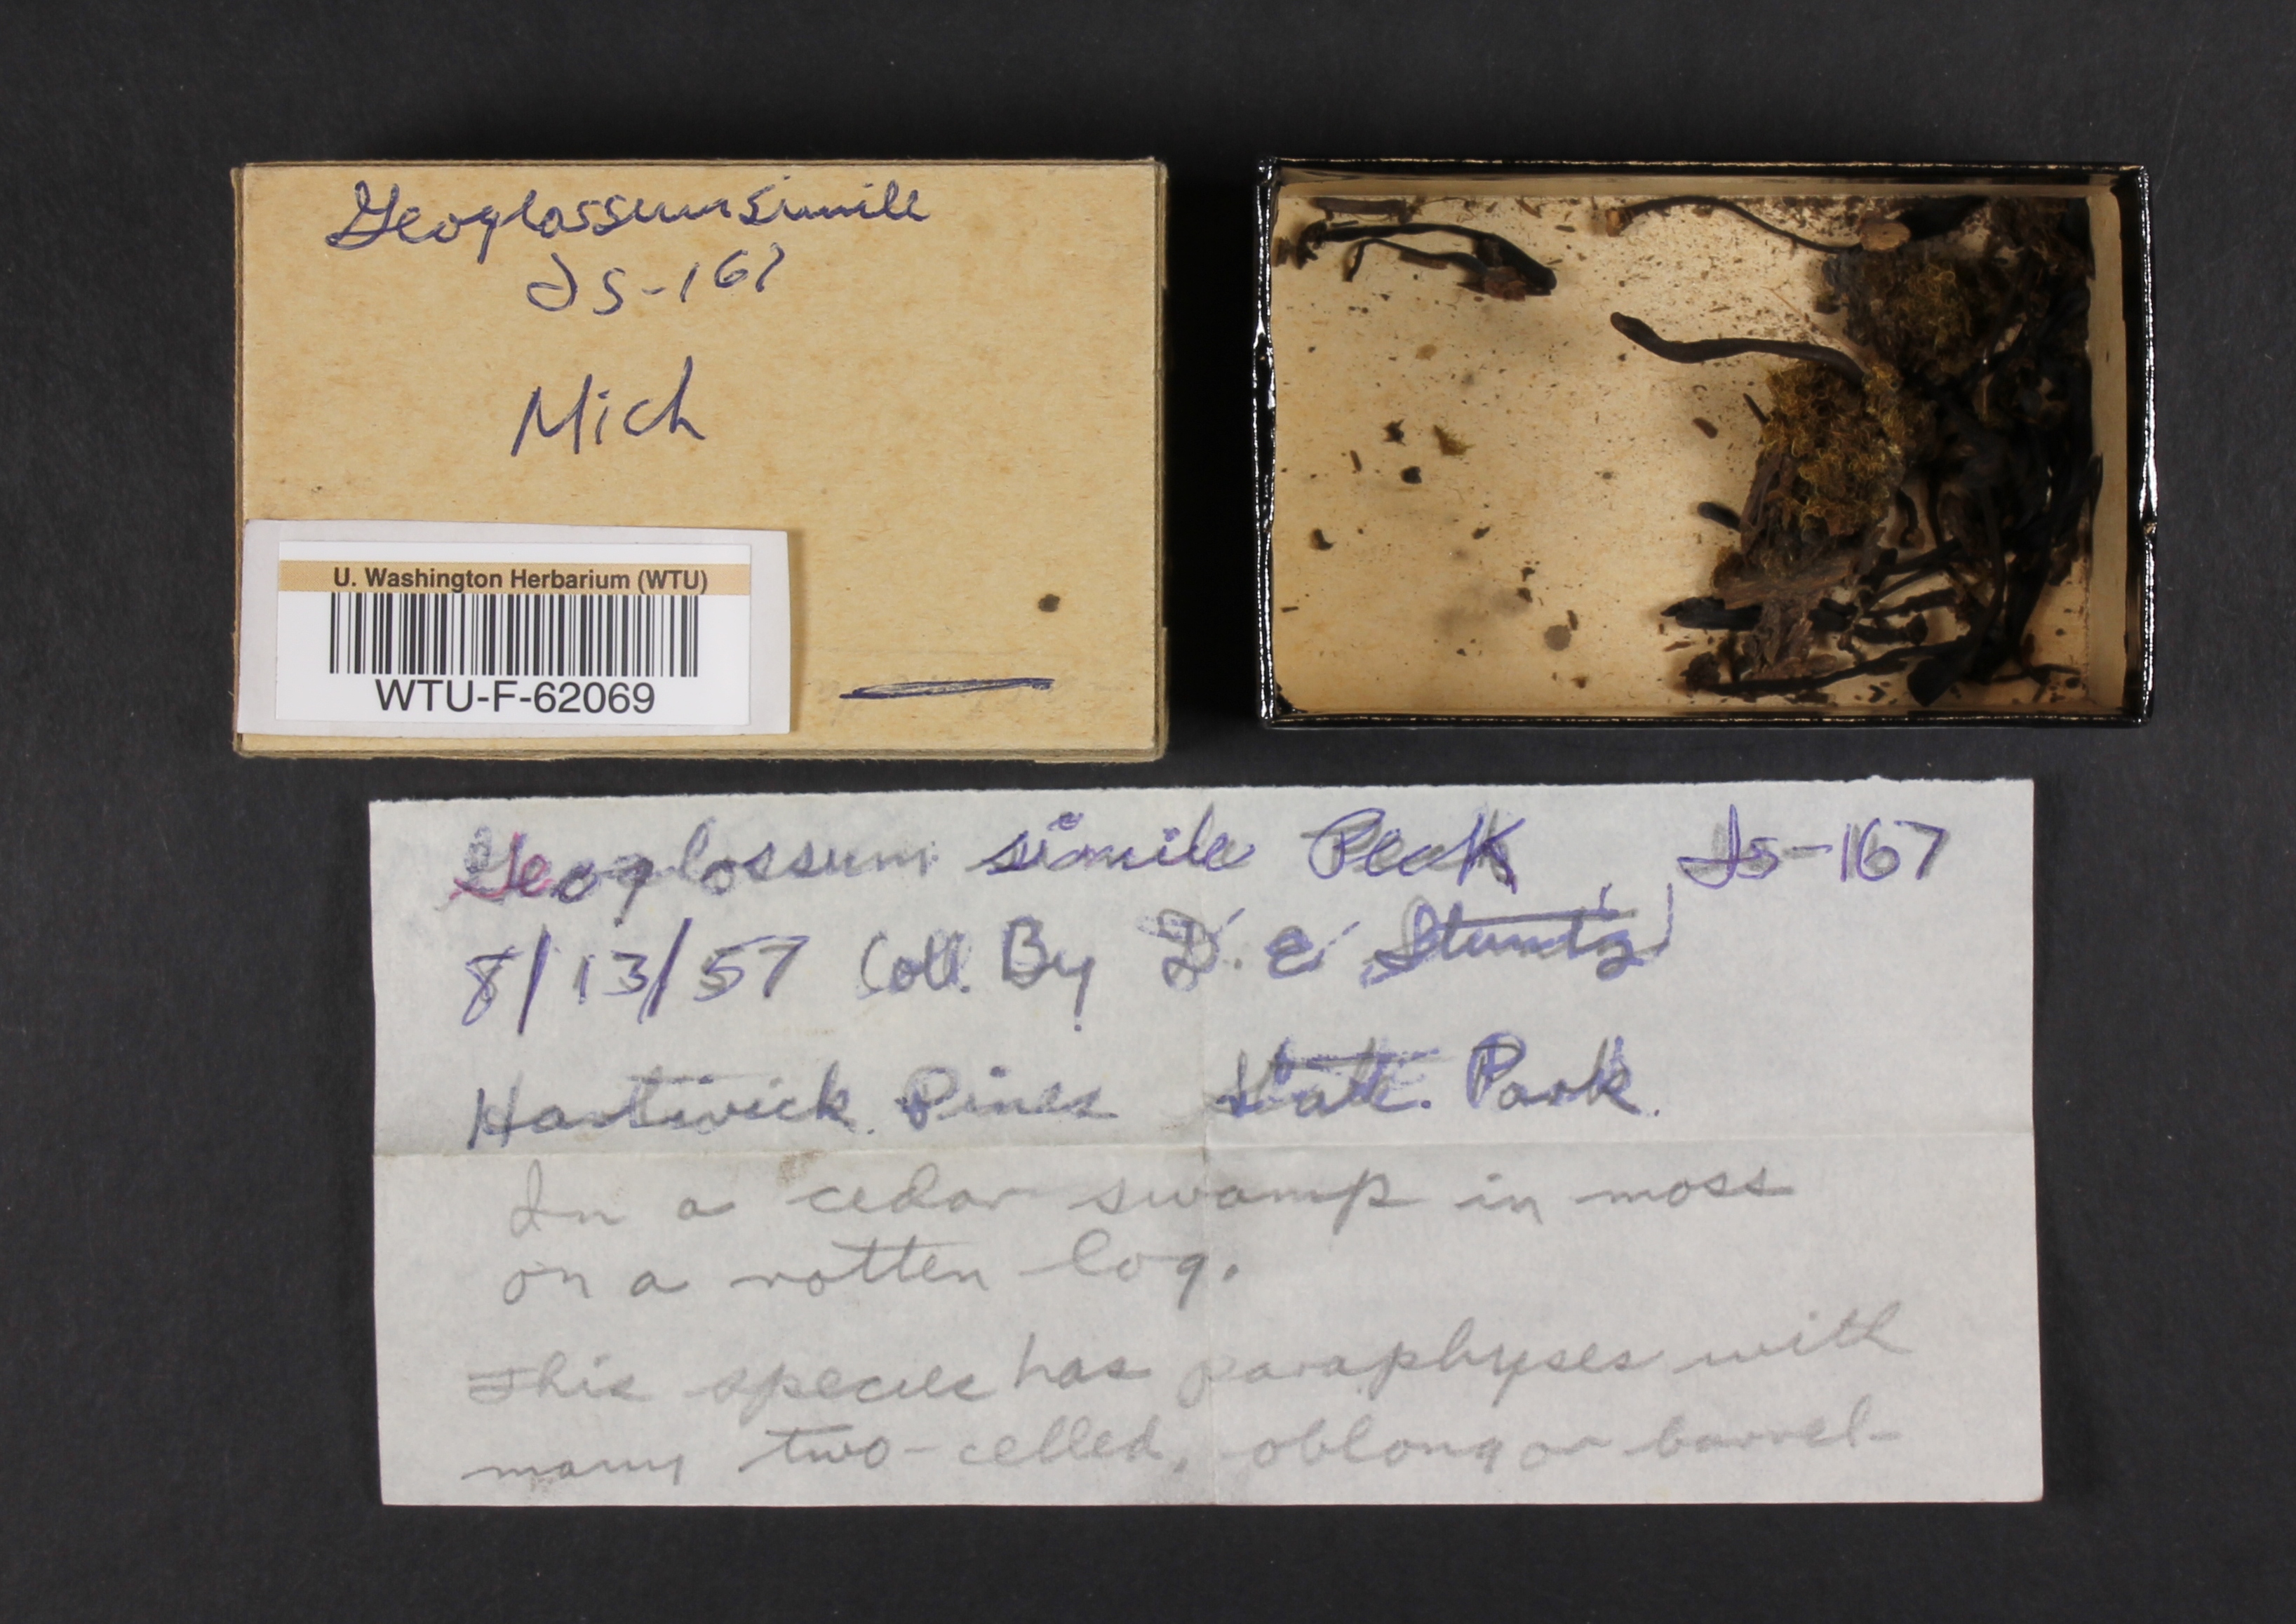 Geoglossum simile
IS-167
Mich
U. Washington Herbarium (WTU)
WTU-F-62069
Geoglossum simile Peck IS-167
8/13/57 Coll. By D. E. Stuntz
Hartwick Pines State Park.
In a cedar swamp in moss
on a rotten log.
This species has paraphyses with
many two-celled, oblong or barrel-